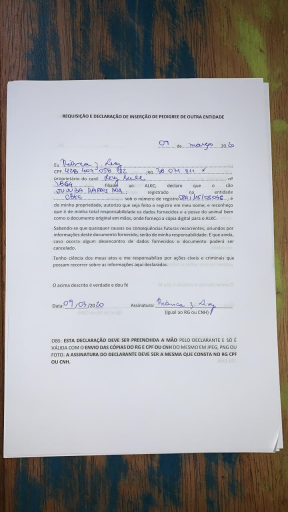 REQUISIÇÃO E DECLARAÇÃO DE INSERÇÃO DE PEDIGREE DE OUTRA ENTIDADE
09 de março 20 20
Eu
CPF RG
proprietário do canil nº
filiado ao ALKC, declaro que o cão
registrado na entidade
CBKC sob o número de registro
de minha propriedade; autorizo que seja feito o registro em meu nome, e reconheço
que é de minha total responsabilidade os dados fornecidos e a posse do animal bem
como o documento original em mãos, onde forneço a cópia digital para o ALKC.
Sabendo-se que quaisquer causas ou consequências futuras recorrentes, oriundos por
informações deste documento fornecido, serão de minha responsabilidade. E que ainda,
caso ocorra algum desencontro de dados fornecidos o documento poderá ser
cancelado.
Tenho ciência dos meus atos e me responsabilizo por ações cíveis e criminais que
possam recorrer sobre as informações aqui declaradas.
O acima descrito é verdade e dou fé
Data 09/03/2020 Assinatura:
(Igual ao RG ou CNH)
OBS: ESTA DECLARAÇÃO DEVE SER PREENCHIDA A MÃO PELO DECLARANTE E SÓ É
VÁLIDA COM O ENVIO DAS CÓPIAS DO RG E CPF OU CNH DO MESMO EM JPEG, PNG OU
FOTO. A ASSINATURA DO DECLARANTE DEVE SER A MESMA QUE CONSTA NO RG CPF
OU CNH.